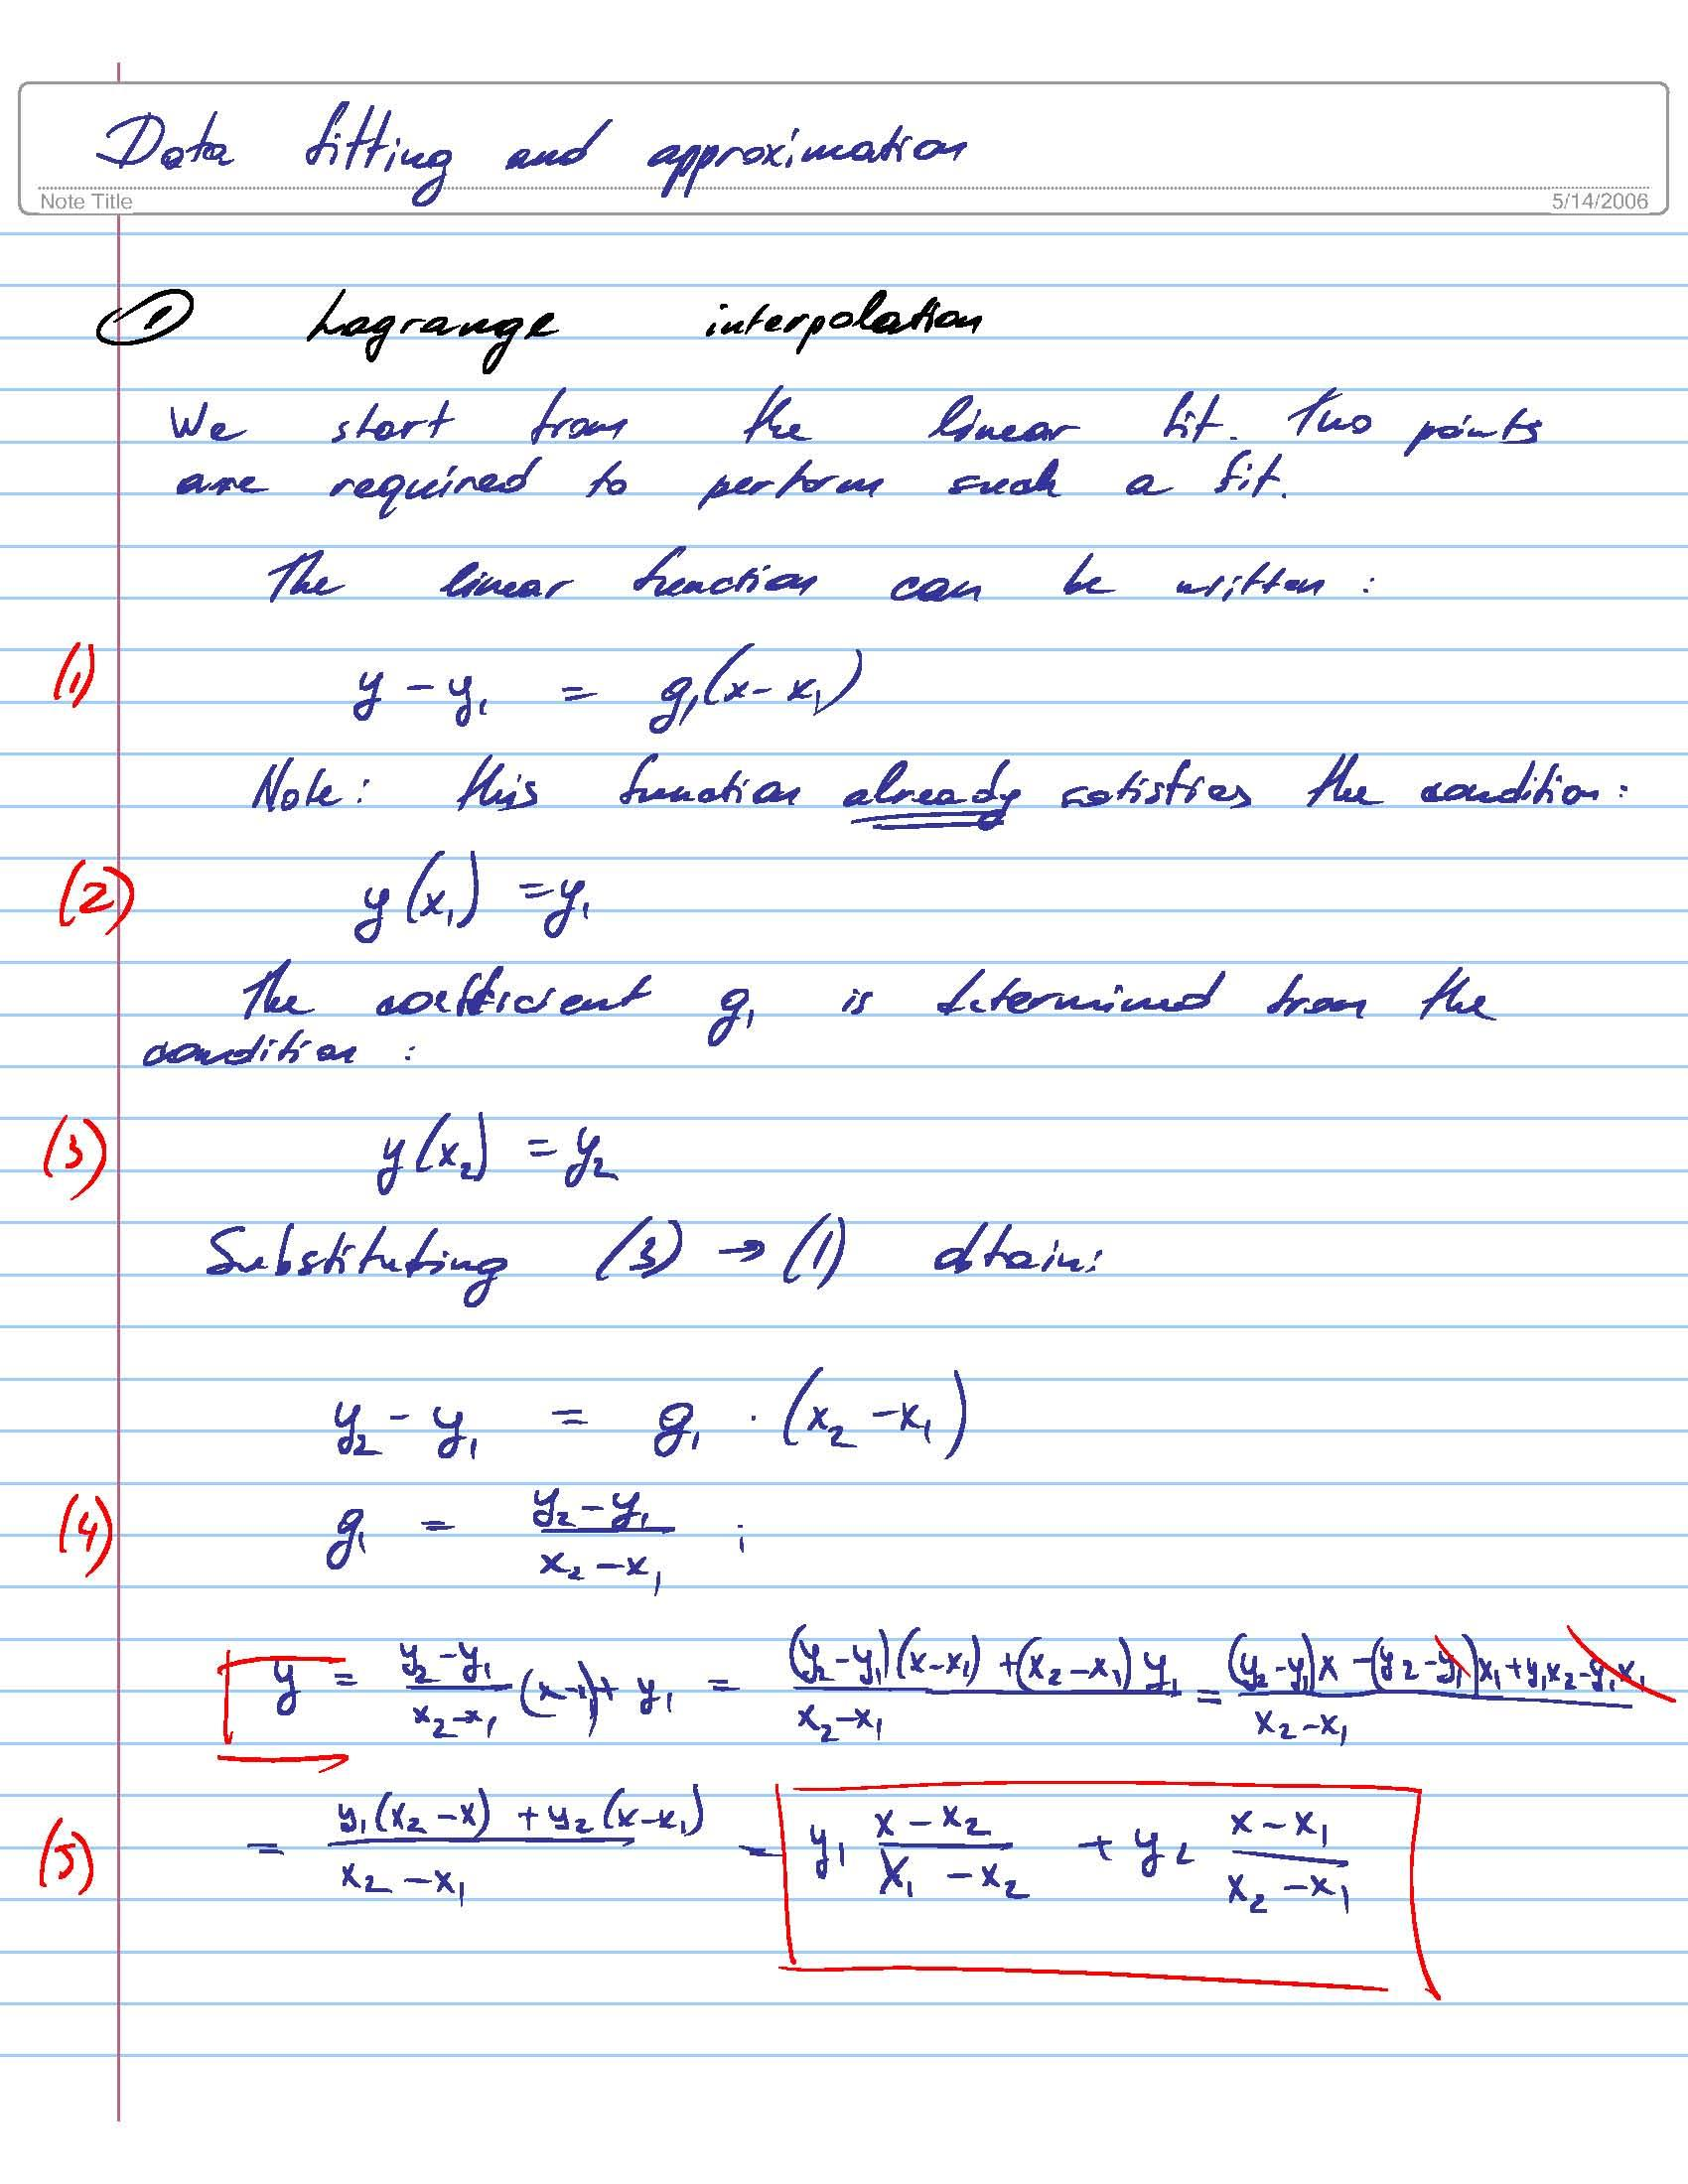 Data fitting and approximation
Note Title 5/14/2006
① Lagrange interpolation
We start from the linear fit. Two points
are required to perform such a fit.
The linear function can be written:
(1) y - y₁ = g₁(x - x₁)
Note: this function already satisfies the condition:
(2) y(x₁) = y₁
The coefficient g₁ is determined from the
condition:
(3) y(x₂) = y₂
Substituting (3) → (1) obtain:
y₂ - y₁ = g₁ · (x₂ - x₁)
(4) g₁ = (y₂ - y₁)/(x₂ - x₁) ;
y = (y₂ - y₁)/(x₂ - x₁) (x - x₁) + y₁ = ((y₂ - y₁)(x - x₁) + (x₂ - x₁) y₁)/(x₂ - x₁) = ((y₂ - y₁)x - (y₂ - y₁)x₁ + y₁x₂ - y₁x₁)/(x₂ - x₁)
(5) = (y₁(x₂ - x) + y₂(x - x₁))/(x₂ - x₁) = y₁ (x - x₂)/(x₁ - x₂) + y₂ (x - x₁)/(x₂ - x₁)